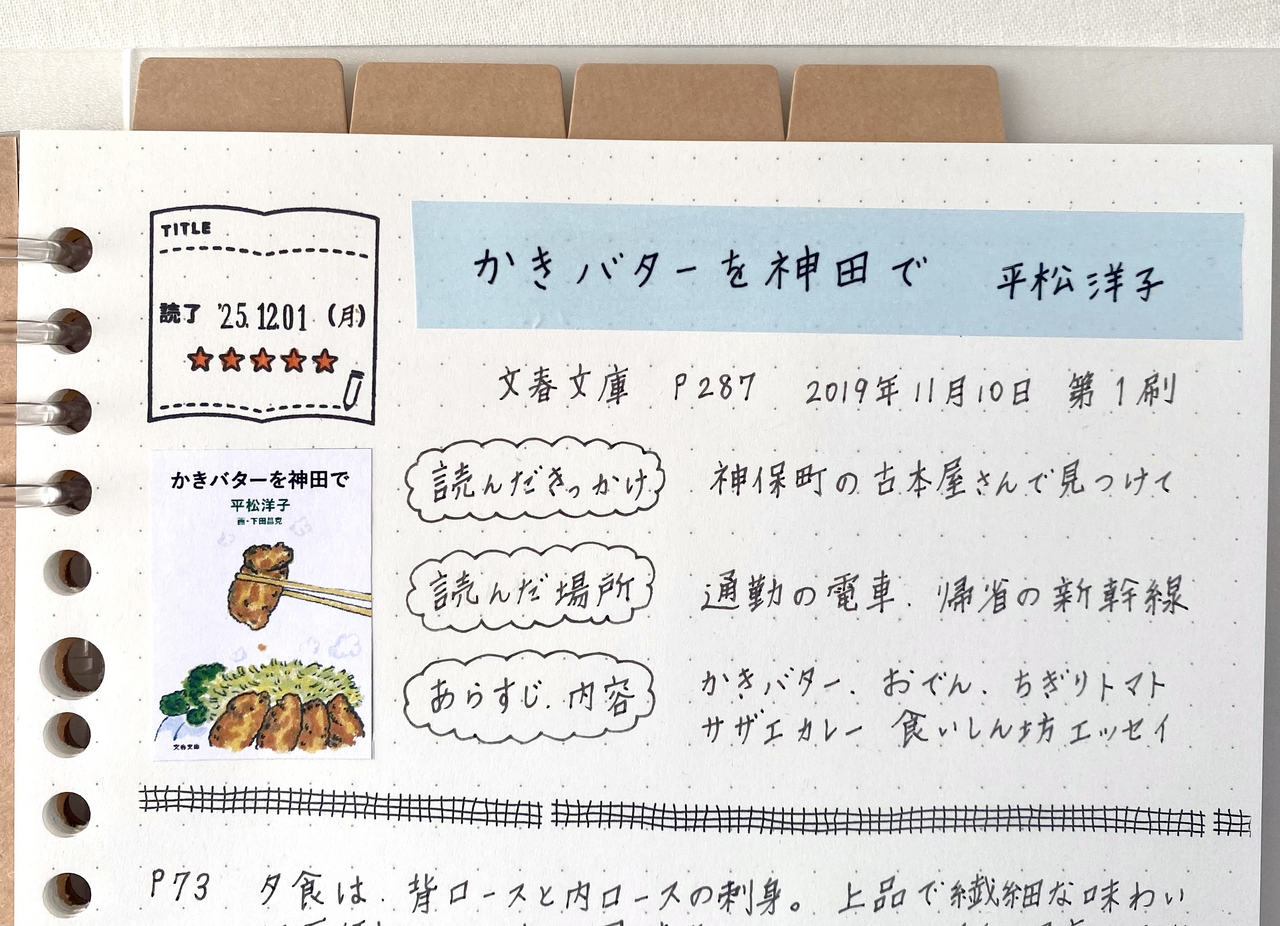 TITLE
読了 '25.12.01 (月)
かきバターを神田で 平松洋子
文春文庫 P287 2019年11月10日 第1刷
かきバターを神田で
平松洋子
画・下田昌克
文春文庫
読んだきっかけ 神保町の古本屋さんで見つけて
読んだ場所 通勤の電車. 帰省の新幹線
あらすじ.内容 かきバター、おでん、ちぎりトマト
サザエカレー 食いしん坊エッセイ
P73 夕食は、背ロースと内ロースの刺身。上品で繊細な味わい